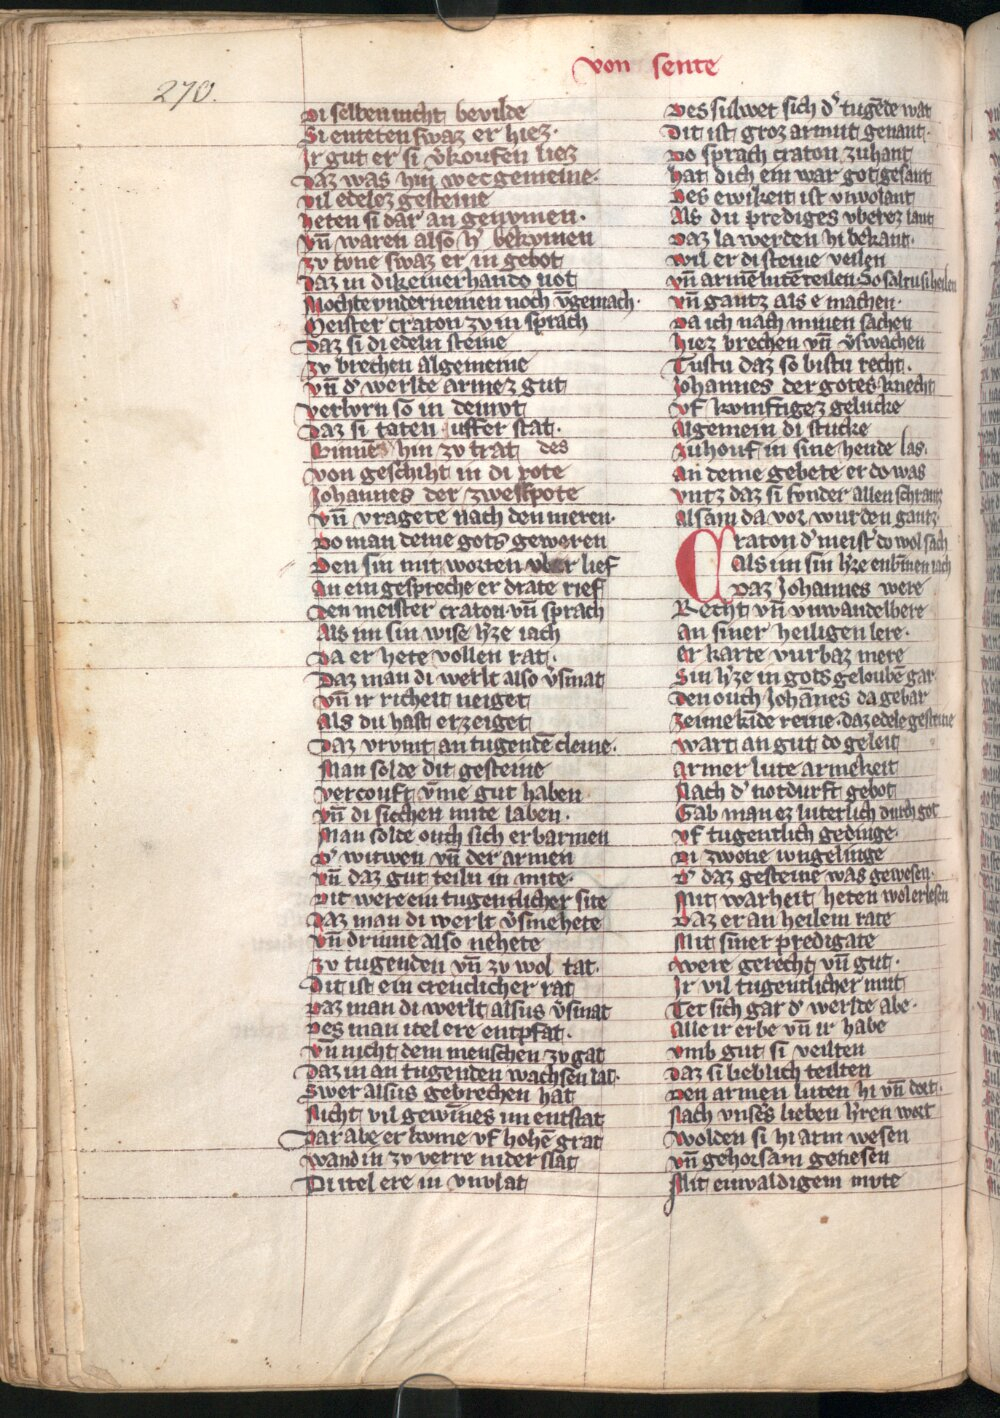 von sente
270.
Di selben nicht bevilde
Si enteten swaz er hiez.
Ir gut er si v̾koufen liez
Daz was hin wec gemeine.
vil edelez gesteine
heten si dar an genvmen.
vn̄ waren also h̾ bekvmen
zv tvne swaz er in gebot
Daz in dikeinerhande not
Mochte vndernemen noch vngemach.
Meister craton zv in sprach
Daz si di edeln steine
zv brechen algemeine
vn̄ d̾ werlde armez gut
verlvrn so in demvt
Daz si taten uffer stat.
hin zv trat des
von geschiht in di rote
Johannes der zwelfpote
vn̄ vragete nach den meren.
Do man deme gots geweren
Den sin mit worten vber lief
An ein gespreche er drate rief
Den meister craton. vn̄ sprach
Als im sin wise h̾ze iach
Da er hete vollen rat.
Daz man di werlt also v̾smat
vn̄ ir richeit neiget
Als du hast erzeiget
Daz vrvmt an tugendē cleine.
Man solde dit gesteine
vercouft v̄me gut haben
vn̄ di siechen mite laben.
Man solde ouch sich erbarmen
D̾ witwen vn̄ der armen
vn̄ daz gut teiln in mite.
Dit were ein tugentlicher site
Daz man di werlt v̾smehete
vn̄ drinne also nehete
zv tugenden vn̄ zv wol tat.
Dit ist ein creuclicher rat
Daz man di werlt alsus v̾smat
Des man itel ere entpfat.
vn̄ nicht dem menschen zv gat
Daz in an tugenden wachsen lat.
Swer alsus gebrechen hat
Nicht vil gewinnes im entstat
Dar abe er kvme vf hohē grat
wand in zv verre nider slat
Di itel ere in vnvlat
Des sulwet sich d̾ tugēde wat
Dit ist groz armut genant.
Do sprach craton zuhant
hat dich ein war got gesant
Des ewikeit ist vnvolant
Als du prediges vberez lant
Daz la werden hi bekant.
wil er di steine veilen
vn̄ armē lutē teilen. So saltu si heilen
vn̄ gantz als e machen.
Da ich nach minen sachen
hiez brechen vn̄ v̾swachen
Tustu daz so bistu recht.
Johannes der gotes knecht
vf kvmftigez gelucke
Algemein di stucke
zuhouf in sine hende las.
An deme gebete er do was
vntz daz si svnder allen schranz
Alsam da vor wurden gantz.
Craton d̾ meist̾ do wol sach
Als im sin h̾ze enbinnen iach
Daz Johannes were
Recht vn̄ vnwandelbere
An siner heiligen lere.
Er karte vurbaz mere
Sin h̾ze in gots geloubē gar
Den ouch Johānes da gebar
zeime kīde reine. daz edele gesteine
wart an gut do geleit
Armer lute armekeit
Nach d̾ notdurft gebot
Gab man ez luterlich durch got
vf tugentlich gedinge.
Di zwene iungelinge
D̾ daz gesteine was gewesen.
Mit warheit heten wol erlesen
Daz er an heilem rate
Mit siner predigate
were gerecht vn̄ gut.
Ir vil tugentlicher mut
Tet sich gar d̾ werlde abe.
Alle ir erbe vn̄ ir habe
vmb gut si veilten
Daz si lieblich teilten
Den armen luten hi vn̄ dort.
Nach vnsers lieben h̾ren wort
wolden si hi arm wesen
vn̄ gehorsam genesen
Mit einvaldigem mvte